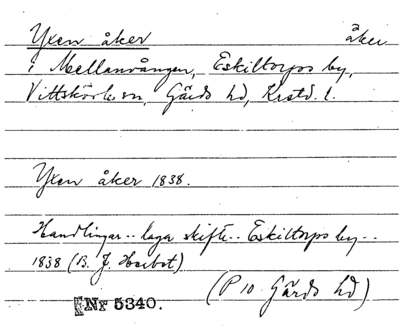 Yxen åker åker
i Mellanvången, Eskiltorps by,
Vittskövle sn, Gärds hd, Krstd. l.
Yxen åker 1838.
Handlingar .. laga skifte .. Eskiltorps by ..
1838 (B. J.
(P 10. Gärds hd)
Nr 5340.